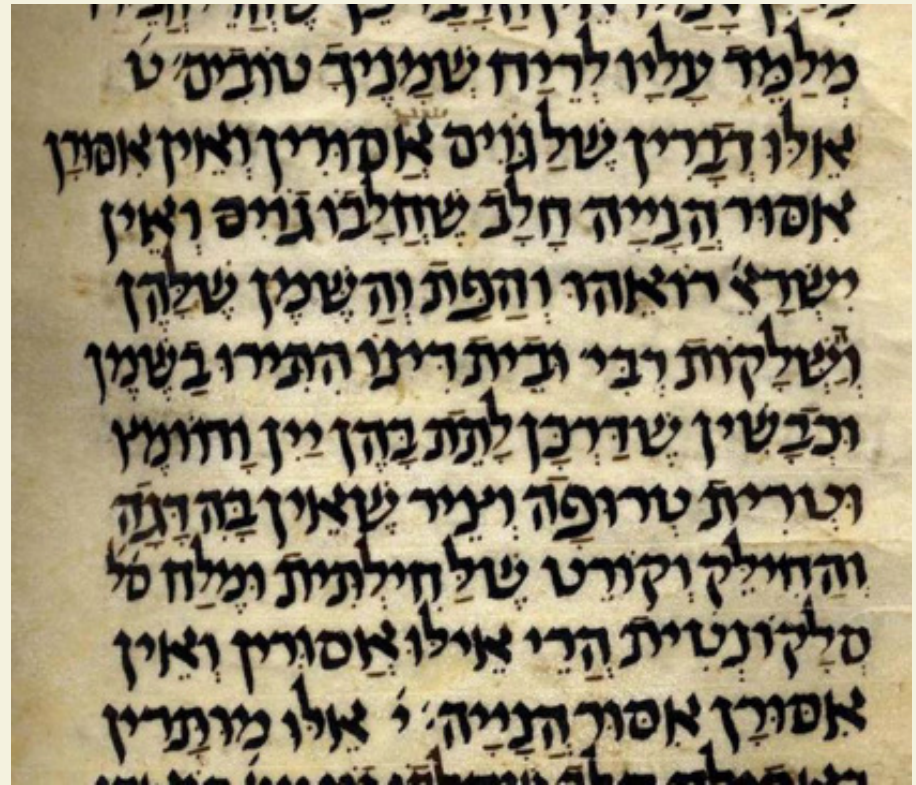 מְלַמֵּד עָלָיו לְרֵיחַ שְׁמָנֶיךָ טוֹבִים׳ ט
אֵלּוּ דְבָרִין שֶׁלַּגּוֹיִם אֲסוּרִין וְאֵין אִסּוּרָן
אִסּוּר הֲנָיָיה חָלָב שֶׁחֲלָבוֹ גוֹיִם וְאֵין
יִשְׂרָאֵ׳ רוֹאֵהוּ וְהַפַּת וְהַשֶּׁמֶן שֶׁלָּהֶן
וְהַשְּׁלָקוֹת רְבִּי׳ וּבֵית דִּינוֹ הִתִּירוּ בַשֶּׁמֶן
וּכְבָשִׁין שֶׁדַּרְכָּן לָתֵת בָּהֶן יַיִן וָחוֹמֶץ
וּטְרִית טְרוּפָה וְצִיר שֶׁאֵין בָּהּ דָּגָה
וְהַחִילֵּק וְקוֹרֶט שֶׁלַּחִילְתִּית וּמֶלַח סל
סַלְקוֹנְטִית הֲרֵי אֵילּוּ אֲסוּרִין וְאֵין
אִסּוּרָן אִסּוּר הֲנָיָיה׃ י׳ אֵלּוּ מוּתָּרִין